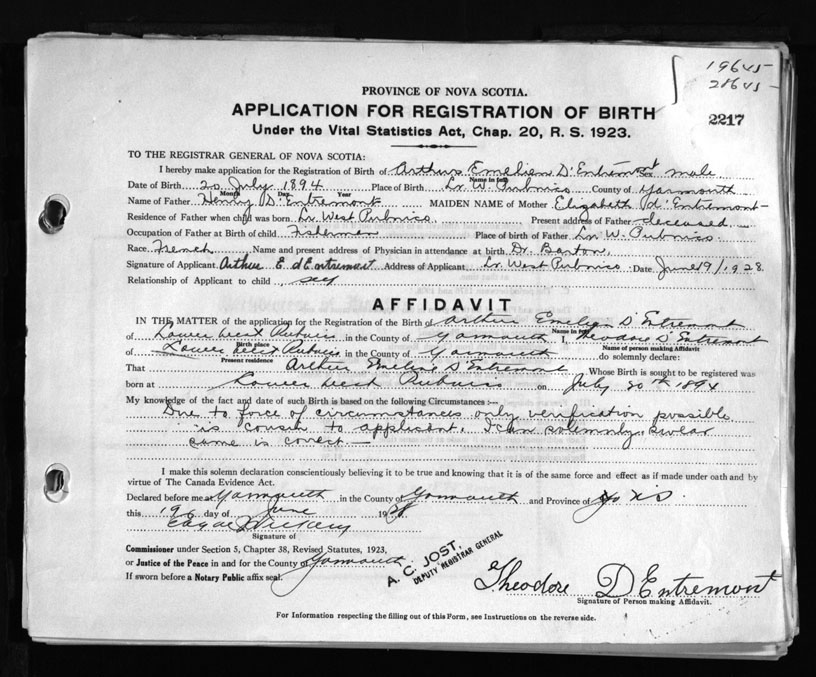 19645-
28645-
PROVINCE OF NOVA SCOTIA.
APPLICATION FOR REGISTRATION OF BIRTH
2217
Under the Vital Statistics Act, Chap. 20, R. S. 1923.
TO THE REGISTRAR GENERAL OF NOVA SCOTIA:
I hereby make application for the Registration of Birth of Arthur Emelien D'Entremont Sex male
Name in full
Date of Birth 20 July 1894 Place of Birth Lr. W. Pubnico County of Yarmouth
Month Day Year
Name of Father Henry D'Entremont MAIDEN NAME of Mother Elizabeth d'Entremont
Residence of Father when child was born Lr West Pubnico Present address of Father deceased
Occupation of Father at Birth of child Fisherman Place of birth of Father Lr. W. Pubnico
Race French Name and present address of Physician in attendance at birth Dr. Barton,
Signature of Applicant Arthur E. d'Entremont Address of Applicant Lr West Pubnico Date June 19/1928.
Relationship of Applicant to child self
AFFIDAVIT
IN THE MATTER of the application for the Registration of the Birth of Arthur Emelien D'Entremont
Name in full
of Lower West Pubnico in the County of Yarmouth I, Theodore D'Entremont
Birth place Name of person making Affidavit
of Lower West Pubnico in the County of Yarmouth do solemnly declare:
Present residence
That Arthur Emelien D'Entremont Whose Birth is sought to be registered was
born at Lower West Pubnico on July 20th 1894
My knowledge of the fact and date of such Birth is based on the following Circumstances :—
Due to force of circumstances only verification possible
is cousin to applicant. I can solemnly swear
same is correct.—
I make this solemn declaration conscientiously believing it to be true and knowing that it is of the same force and effect as if made under oath and by
virtue of The Canada Evidence Act.
Declared before me at Yarmouth in the County of Yarmouth and Province of N S
this 19 day of June 1928
Signature of
Commissioner under Section 5, Chapter 38, Revised Statutes, 1923,
or Justice of the Peace in and for the County of Yarmouth
If sworn before a Notary Public affix seal.
A. C. JOST,
DEPUTY REGISTRAR GENERAL
Theodore D Entremont
Signature of Person making Affidavit.
For Information respecting the filling out of this Form, see Instructions on the reverse side.